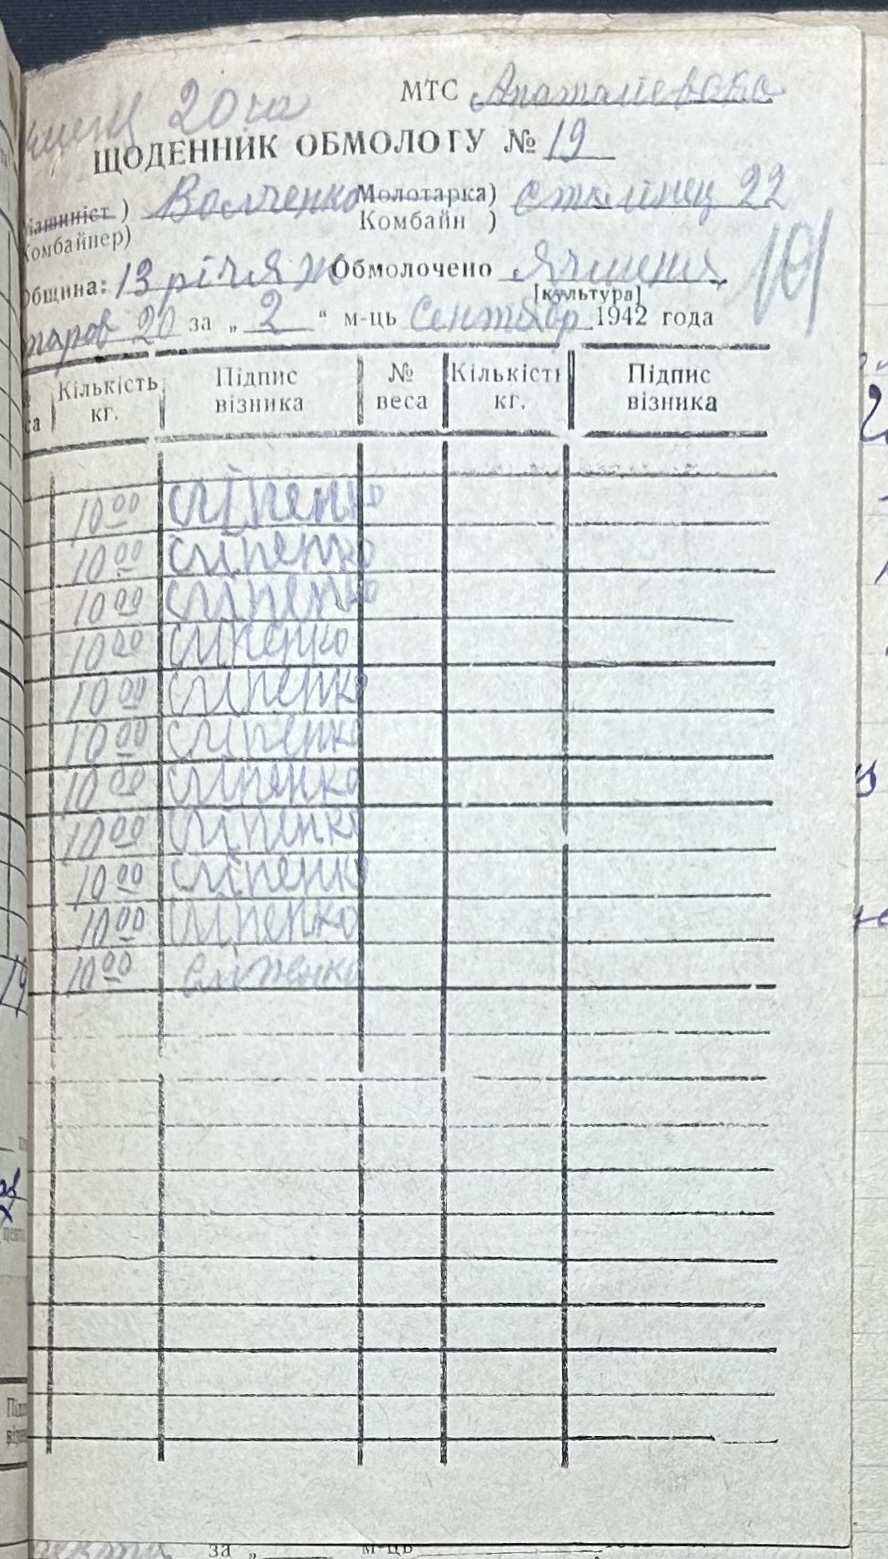 20 га
МТС Анатолиевова
ЩОДЕННИК ОБМОЛОГУ № 19
Машиніст ) Волченко Молотарка) Сталінец 22
Комбайнер) Комбайн )
Община: 13 річчя Ж Обмолочено Ячменя
[культура]
20 за „ 2 “ м-ць Сентябр 1942 года
101
Кількість кг. Підпис візника № веса Кількість кг. Підпис візника
10 00 сліпенко
10 00 сліпенко
10 00 сліпенко
10 00 сліпенко
10 00 сліпенко
10 00 сліпенко
10 00 сліпенко
10 00 сліпенко
10 00 сліпенко
10 00 сліпенко
10 00 сліпенко
за „ м-ць